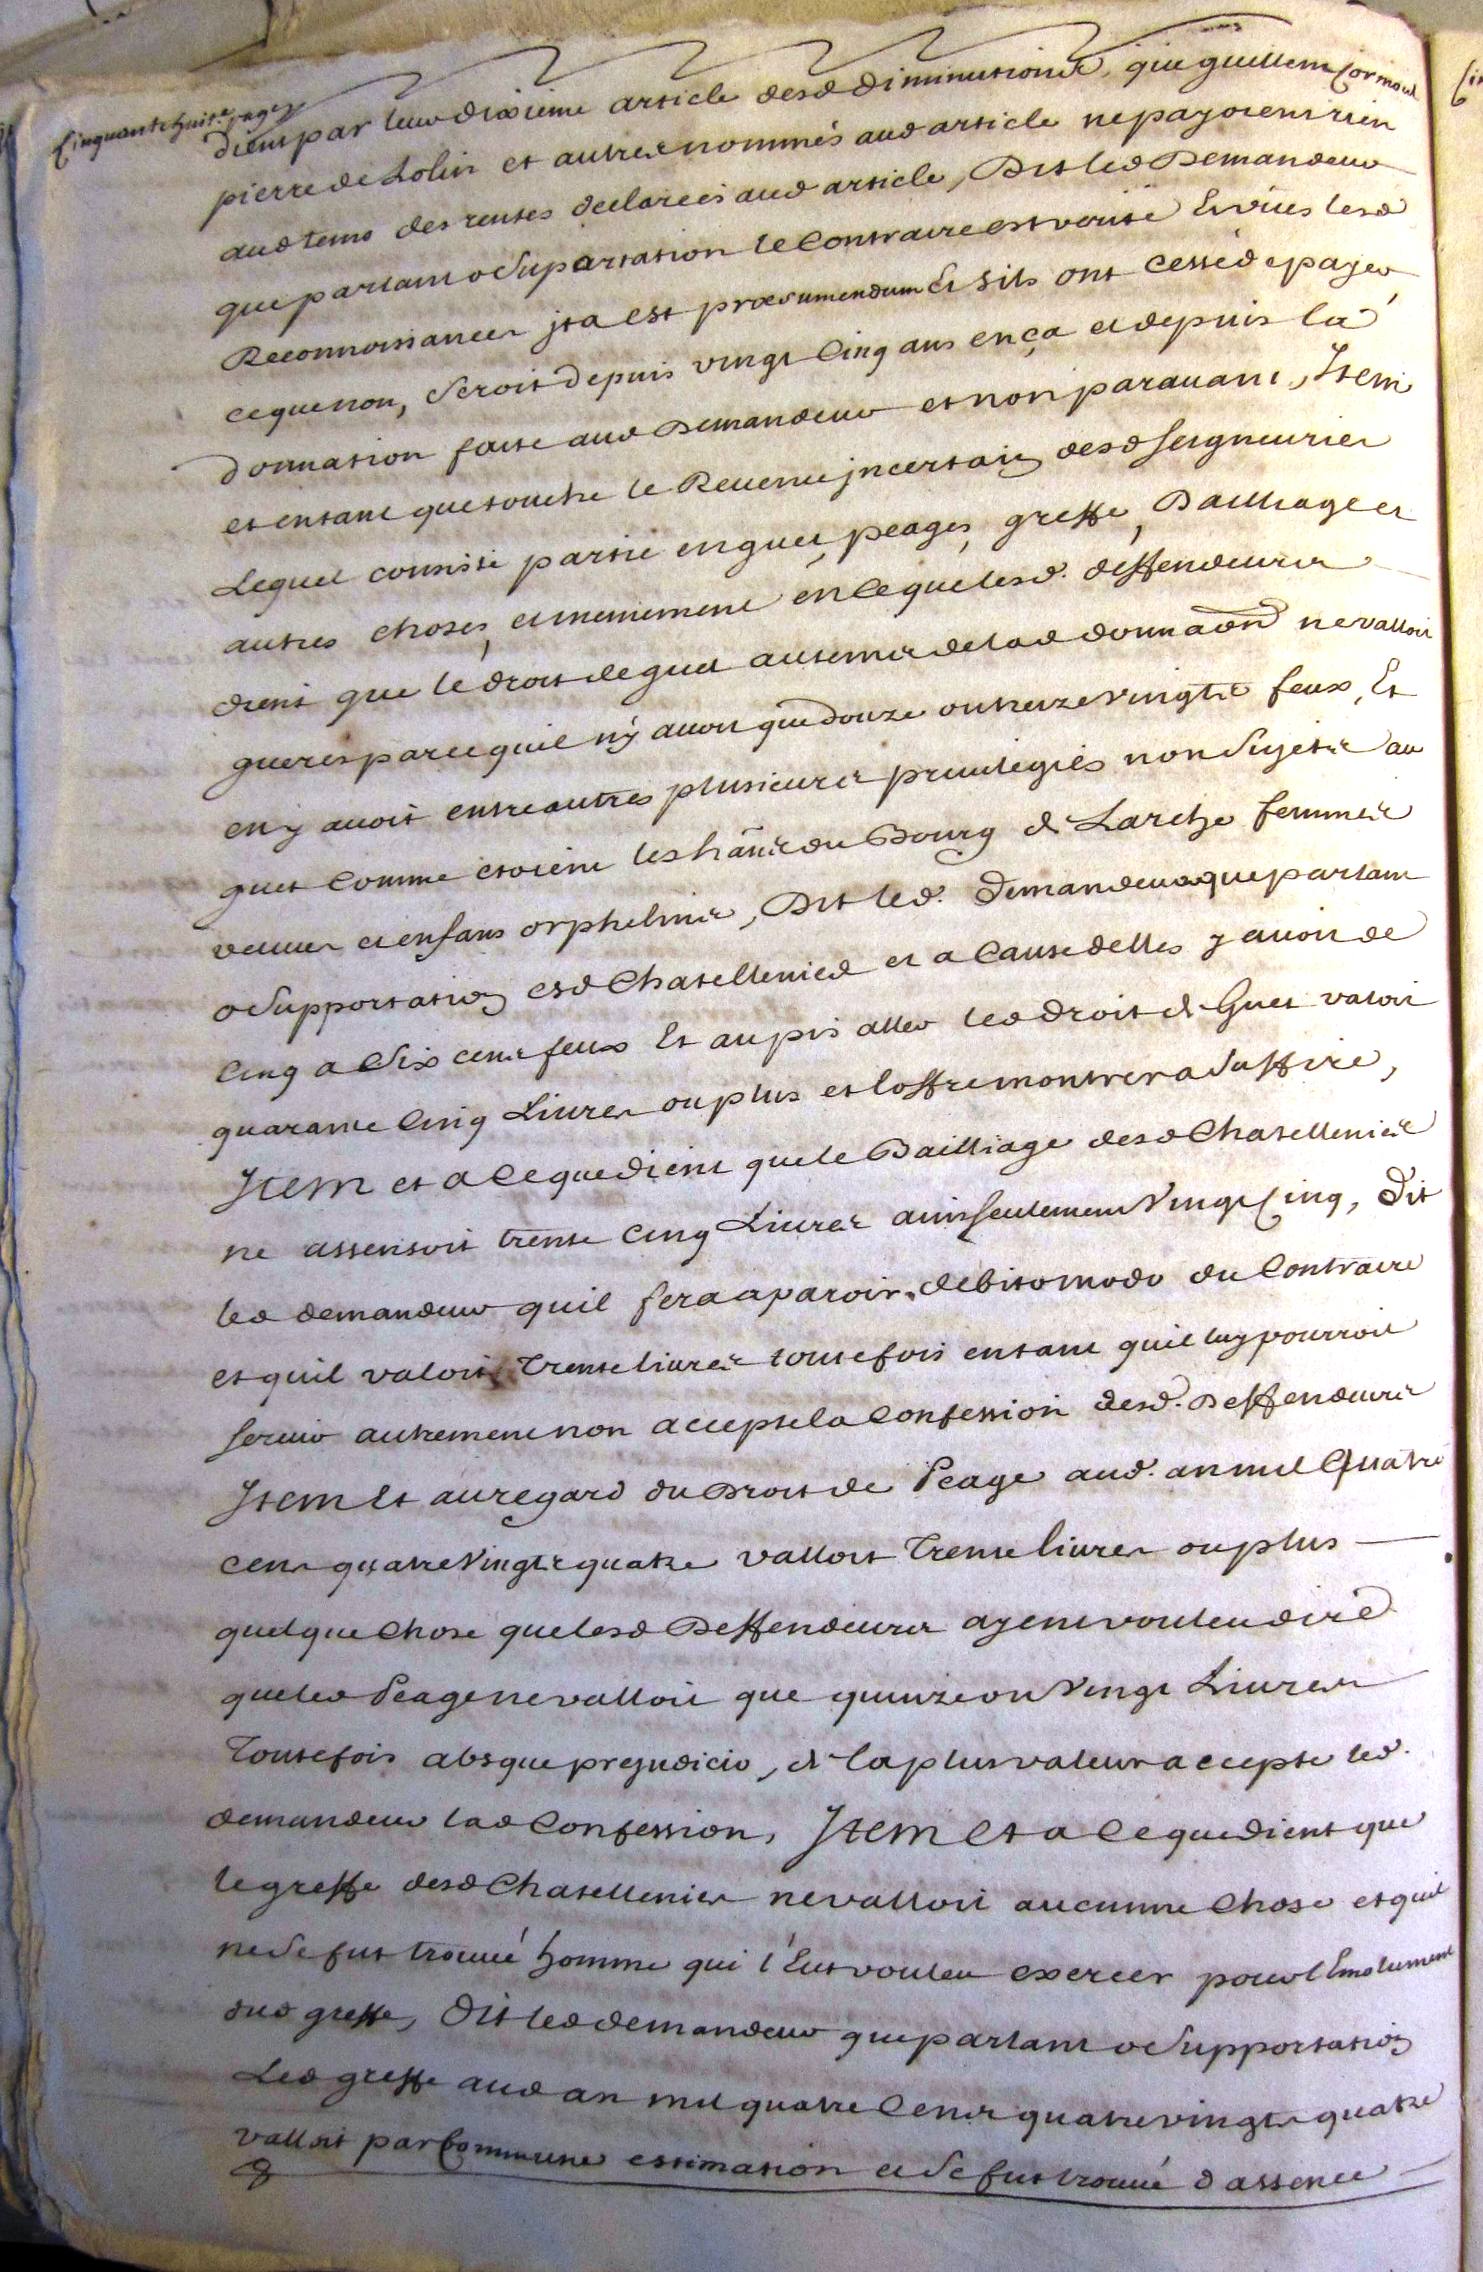 Cinquante huit.e page
dient par leur dixieme article desd diminutions, que guillem
pierre de Lolin et autres nommés aud article ne payoient rien
aud tems des rentes declarées aud article, Dit led Demandeur
que parlant o Suportation le Contraire est verité Et vües lesd
Reconnoissances jta est præsumendum Et sils ont cessé de payer
ce que non, Seroit depuis vingt Cinq ans en ça et depuis la
donnation faite aud Demandeur et non paravant, Item
et entant que touche le Revenu jncertain desd Seigneuries
Lequel consiste partie en guet, peages, greffe, Bailliage et
autres choses, et mêmement en Ce que lesd. deffendeurs
dient que le droit de guet au tems de lad donnaon ne valloit
gueres parce quil ny avoit que douze ou treize vingts feux, Et
en y avoit entre autres plusieurs privilegiés non Sujets au
guet Comme étoient les hans du Bourg de Larche femmes
veuves et enfans orphelins, Dit led. Demandeur que parlant
o Supportation esd Chatellenies et a Cause delles y avoit de
Cinq a Six cens feux Et au pis aller led droit de Guet valoit
quarante Cinq Livres ou plus et loffre montrer a Suffire,
Item et a Ce que dient que le Bailliage desd Chatellenies
ne assensoit trente cinq Livres ains seulement Vingt Cinq, Dit
led demandeur quil fera aparoir debito modo du Contraire
et quil valoit Trente livres toutefois entant quil luy pourroit
servir autrement non accepte la Confession desd. Deffendeurs
Item Et au regard du Droit de Peage aud. an mil Quatre
cens quatre Vingts quatre valloit Trente livres ou plus
quelque Chose que lesd Deffendeurs ayent voulu dire
que led Peage ne valloit que quinze ou Vingt Livres
Toutefois absque prejudicio, de la plus valeur accepte led.
demandeur lad Confession, Item Et a Ce que dient que
le greffe desd Chatellenies ne valloit aucune Chose et quil
ne Se fut trouvé homme qui l'Eut voulu exercer pour l'Emolument
dud greffe, Dit led demandeur que parlant o Supportation
Led greffe aud an mil quatre Cens quatre vingts quatre
valloit par Commune estimation et Se fut trouvé d assence